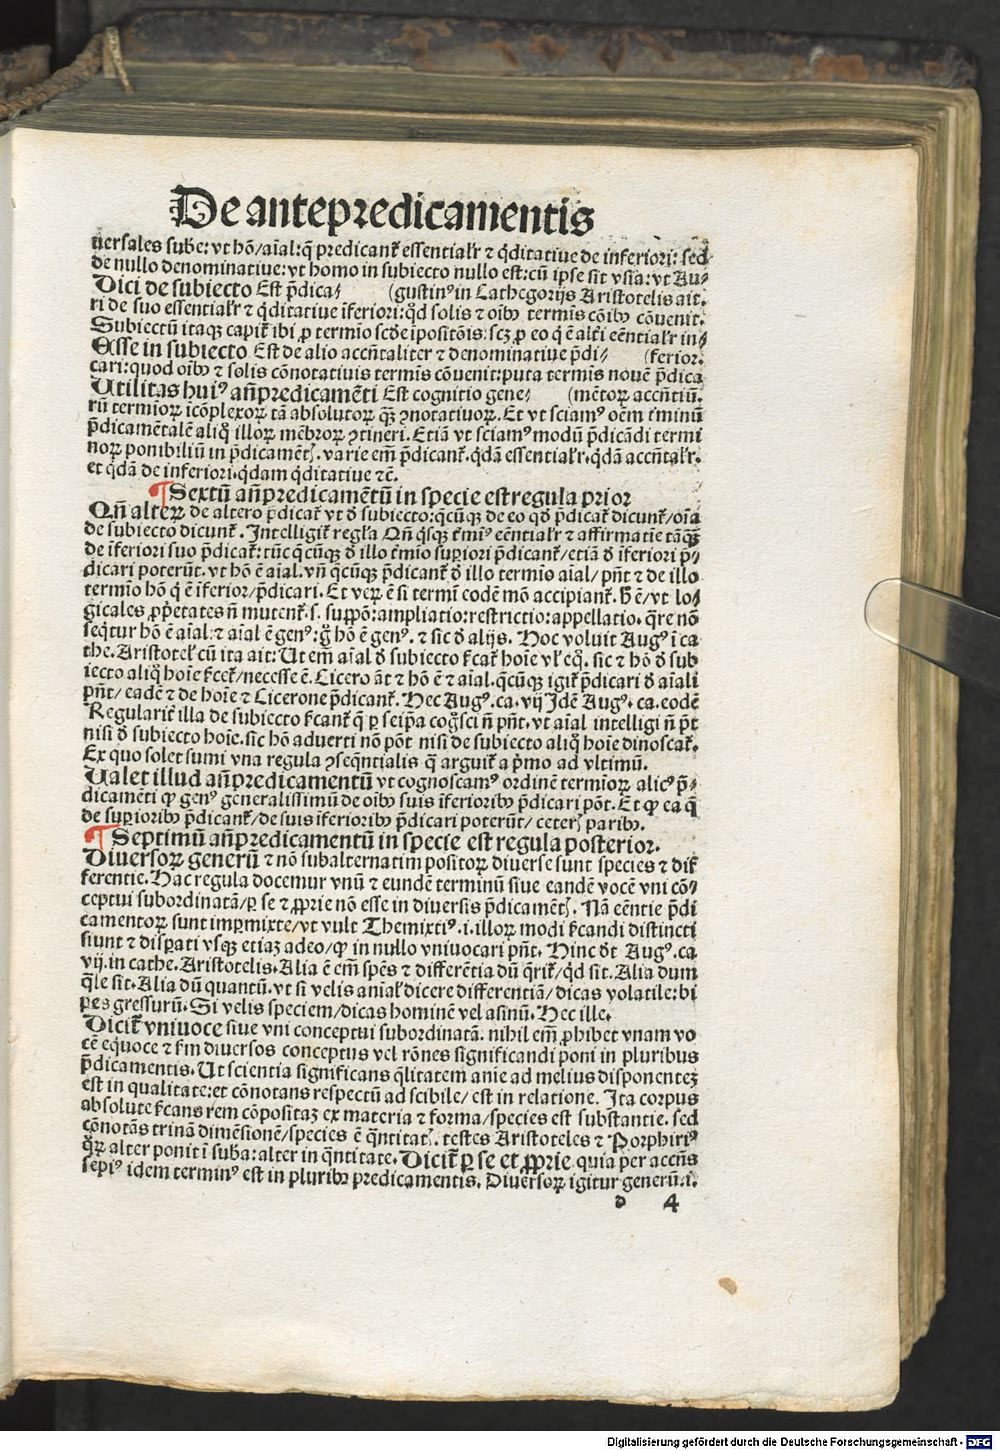 De antepredicamentis
uersales sube: vt hō/aīal: q̄ predicant᷑ essentialr̄ ⁊ q̄ditatiue de inferiori: sed
de nullo denominatiue: vt homo in subiecto nullo est: cū ipse sit vsīa: vt Au⸗
Dici de subiecto Est p̄dica⸗ (gustinꝰ in Cathegorijs Aristotelis ait.
ri de suo essentialr̄ ⁊ q̄ditatiue īferiori: qd̄ solis ⁊ oībꝰ termis cōibꝰ cōuenit.
Subiectū itaqꝫ capit᷑ ibi ꝓ termīo scd̄e īpositōis: scꝫ ꝓ eo q̄ ē alt̄i eēntialr̄ in⸗
Esse in subiecto Est de alio accn̄taliter ⁊ denominatiue p̄di⸗ (ferior.
cari: quod oībꝰ ⁊ solis cōnotatiuis termis cōuenit: puta termis nouē p̄dica
Utilitas huiꝰ an̄predicamēti Est cognitio gene⸗ (mētoꝝ accn̄tiū.
rū termioꝝ icōplexoꝝ tā absolutoꝝ qꝫ ꝯnotatiuoꝝ. Et vt sciamꝰ oēm t̄minū
p̄dicamētalē aliq̄ illoꝝ mēbroꝝ ꝯtineri. Etiā vt sciamꝰ modū p̄dicādi termi
noꝝ ponibiliū in p̄dicamēt᷒. varie em̄ p̄dicant᷑. q̄dā essentialr̄. q̄dā accn̄talr̄.
et q̄dā de inferiori. q̄dam q̄ditatiue ⁊c̄.
¶ Sextū an̄predicamētū in specie est regula prior
Qn̄ alteꝝ de altero p̄dicat᷑ vt ð subiecto: q̄cūqꝫ de eo qð p̄dicat᷑ dicunt᷑/oīa
de subiecto dicunt᷑. Intelligit᷑ regl̄a Qn̄ q̄sqꝫ t̄miꝰ eēntialr̄ ⁊ affirmatie tāqꝫ
de īferiori suo p̄dicat᷑: tūc q̄cūqꝫ ð illo t̄mīo supiori p̄dicant᷑/etiā ð īferiori p̄⸗
dicari poterūt. vt hō ē aīal. vn̄ q̄cūqꝫ p̄dicant᷑ ð illo termīs aīal/ pn̄t ⁊ de illo
termīo hō q̄ ē īferior/p̄dicari. Et veꝝ ē si termī codē mō accipiant᷑. h̄ ē/vt lo⸗
gicales ꝓp̄etates n̄ mutent᷑. s. suppō: ampliatio: restrictio: appellatio. q̄re nō
seq̄tur hō ē aīal: ⁊ aīal ē genꝰ: g̊ hō ē genꝰ. ⁊ sic ð alijs. Hoc voluit Augꝰ ī ca
the. Aristotel᷑ cū ita ait: Ut em̄ aīal ð subiecto f̄cat᷑ hoīe vl᷑ eq̊. sic ⁊ hō ð sub
iecto aliq̊ hoīe f̄cet᷑/necesse ē. Cicero āt ⁊ hō ē ⁊ aīal. q̄cūqꝫ igit᷑ p̄dicari ð aīali
pn̄t/ eadē ⁊ de hoīe ⁊ Cicerone p̄dicant᷑. Hec Augꝰ. ca. vij Idē Augꝰ. ca. eodē
Regularit᷑ illa de subiecto f̄cant᷑ q̄ ꝑ seip̄a cog̊sci n̄ pn̄t. vt aīal intelligi n̄ p̄t
nisi ð subiecto hoīe. sic hō aduerti nō pōt nisi de subiecto aliq̊ hoīe dinoscat᷑.
Ex quo solet sumi vna regula ꝯseq̄ntialis q̄ arguit᷑ a p̄mo ad vltimū.
Ualet illud an̄predicamentū vt cognoscamꝰ ordinē termioꝝ alicꝰ p̄⸗
dicamēti ꝙ genꝰ generalissimū de oībꝰ suis īferioribꝰ p̄dicari pōt. Et ꝙ ea q̄
de supioribꝰ p̄dicant᷑/de suis īferioribꝰ p̄dicari poterūt/ ceter᷒ paribꝰ.
¶ Septimū an̄predicamentū in specie est regula posterior.
Diuersoꝝ generū ⁊ nō subalternatim positoꝝ diuerse sunt species ⁊ dif
ferentie. Hac regula docemur vnū ⁊ eundē terminū siue eandē vocē vni cō⸗
ceptui subordinatā/ꝑ se ⁊ ꝓprie nō esse in diuersis p̄dicamēt᷒. Nā eēntie p̄di
camentoꝝ sunt impmixte/vt vult Themixtiꝰ. i. illoꝝ modi f̄candi distincti
siunt ⁊ disꝑati vsqꝫ etiaꝫ adeo/ꝙ in nullo vniuocari pn̄t. Hinc ðt Augꝰ. ca
vij. in cathe. Aristotelis. Alia ē em̄ spēs ⁊ differētia dū q̄rit᷑/qd̄ sit. Alia dum
q̄le sit. Alia dū quantū. vt si velis anīal᷑ dicere differentiā/ dicas volatile: bi
pes gressurū. Si velis speciem/dicas hominē vel asinū. Hec ille.
Dicit᷑ vniuoce siue vni conceptui subordinatā. nihil em̄ ꝓhibet vnam vo
cē equoce ⁊ f̄m diuersos conceptus vel rōnes significandi poni in pluribus
p̄dicamentis. Ut scientia significans q̄litatem anie ad melius disponenteꝫ
est in qualitate: et cōnotans respectū ad scibile/ est in relatione. Ita corpus
absolute f̄cans rem cōpositaꝫ ex materia ⁊ forma/species est substantie. sed
cōnotās trinā dimēsionē/species ē q̄ntitat᷒. testes Aristoteles ⁊ Porphiriꝰ
q̊ꝝ alter ponit ī suba: alter in q̄ntitate. Dicit᷑ ꝑ se et ꝓprie quia per accn̄s
sepiꝰ idem terminꝰ est in pluribꝰ predicamentis. Diuersoꝝ igitur generū. i.
d 4
Digitalisierung gefördert durch die Deutsche Forschungsgemeinschaft - DFG